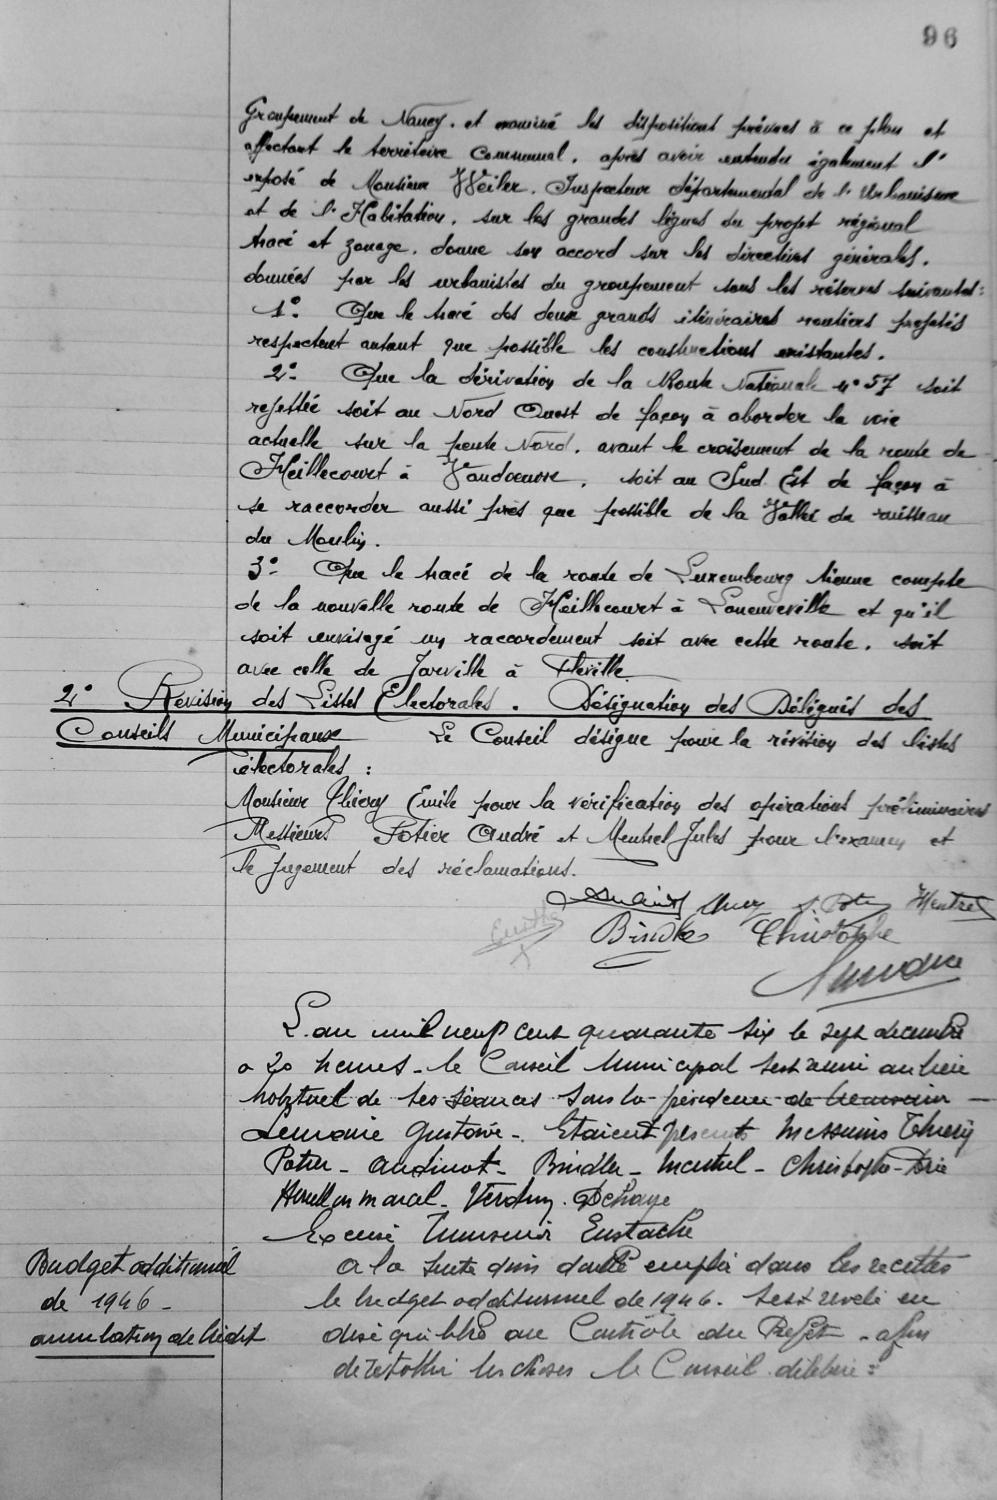 96
Groupement de Nancy. et examiné les dispositions prévues à ce plan et
affectant le territoire Communal. après avoir entendu également l'
exposé de Monsieur Weiler. Inspecteur départemental de l'Urbanisme
et de l'Habitation. sur les grandes lignes du projet régional
tracé et zonage. donne son accord sur les directives générales.
données par les urbanistes du groupement sous les réserves suivantes:
1° Que le tracé des deux grands itinéraires routiers projetés
respectent autant que possible les constructions existantes.
2° Que la dérivation de la Route Nationale n° 57 soit
rejettée soit au Nord Ouest de façon à aborder la voie
actuelle sur la pente Nord. avant le croisement de la route de
Heillecourt à Vandoeuvre. soit au Sud Est de façon à
se raccorder aussi près que possible de la Vallée du ruisseau
du Moulin.
3° Que le tracé de la route de Luxembourg tienne compte
de la nouvelle route de Heillecourt à Laneuveville et qu'il
soit envisagé un raccordement soit avec cette route. soit
avec celle de Jarville à Fléville.
2° Révision des Listes Electorales. Désignation des Délégués des
Conseils Municipaux Le Conseil désigne pour la révision des listes
électorales :
Monsieur Thiery Emile pour la vérification des opérations préliminaires
Messieurs Potier André et Mentrel Jules pour l'examen et
le jugement des réclamations.
Mentrel
Bindler Christophe
L'an mil neuf cent quarante six le sept decembre
a 20 heures - le Conseil Municipal s'est réuni au lieu
habituel de ses séances sous la présidence de Monsieur
Lemoine Gustave - Etaient présents Messieurs Thiery
Potier - Audinot - Bindler - Mentrel - Christophe -
Verdun - Dehaye
Excusé Monsieur Eustache
Budget additionnel
de 1946 -
annulation de crédit
A la suite d'un double emploi dans les recettes
le budget additionnel de 1946. s'est révélé en
déséquilibre au Contrôle du Préfet - afin
de rétablir les choses le Conseil délibère :